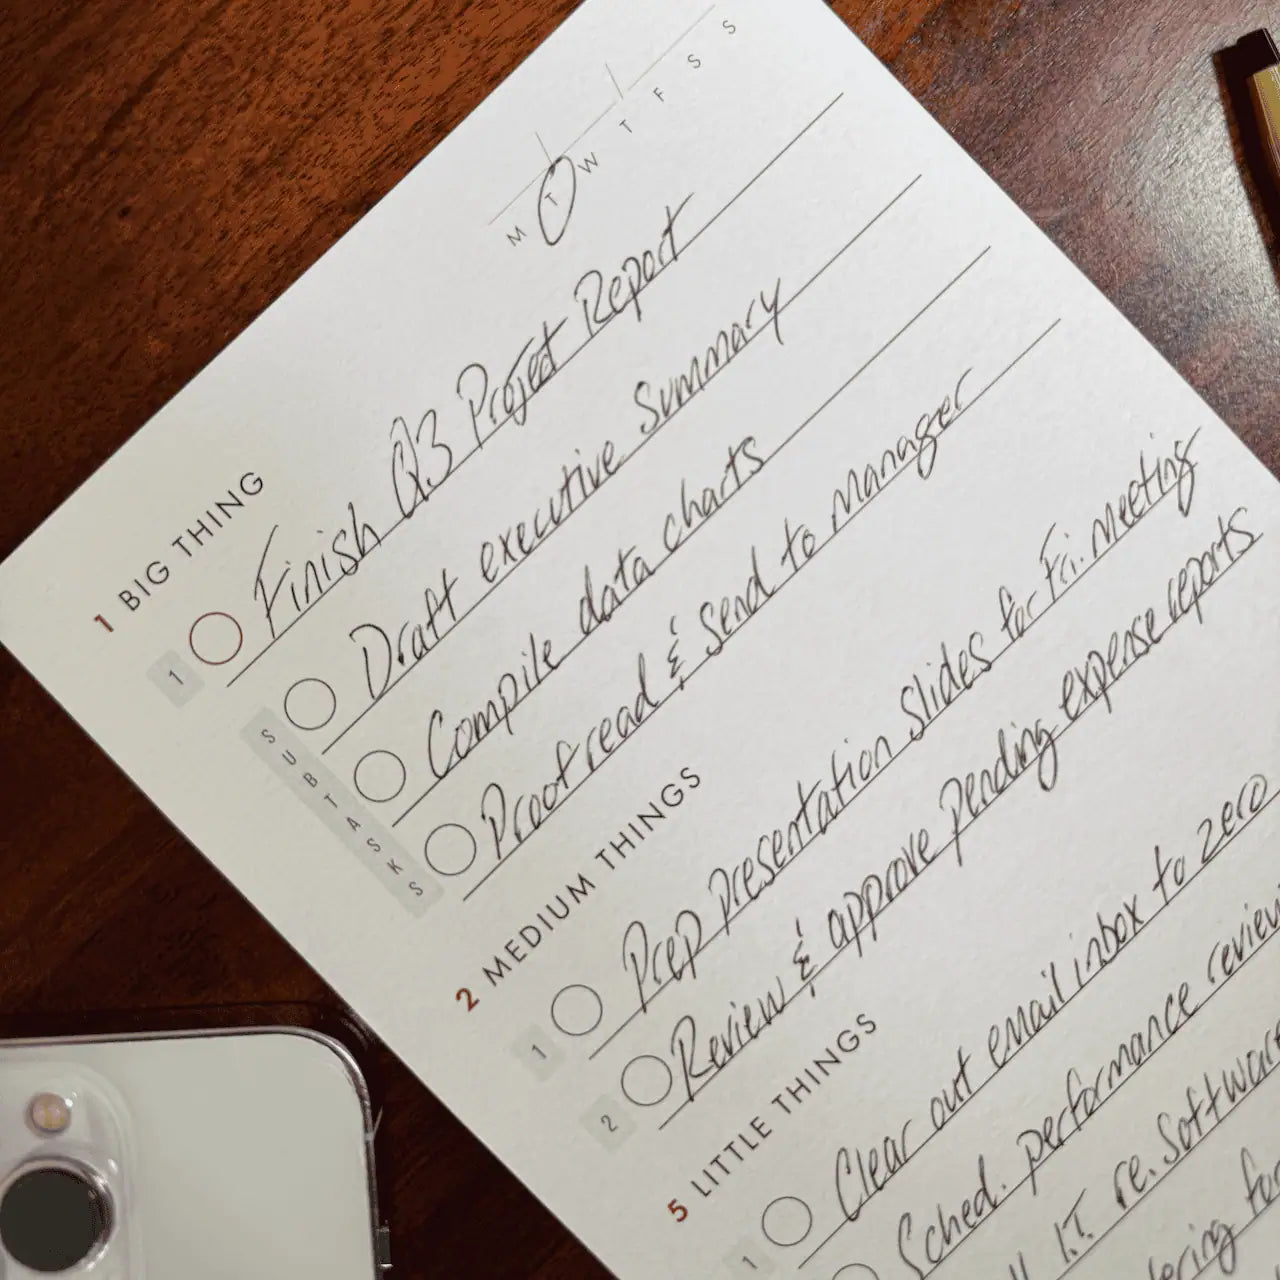 M T W T F S S
1 BIG THING
1 Finish Q3 Project Report
SUBTASKS
Draft executive Summary
Compile data charts
Proofread & send to manager
2 MEDIUM THINGS
1 Prep presentation slides for Fri. meeting
2 Review & approve pending expense reports
5 LITTLE THINGS
1 Clear out email inbox to zero
Sched. performance review
I.T. re. Softwar
for